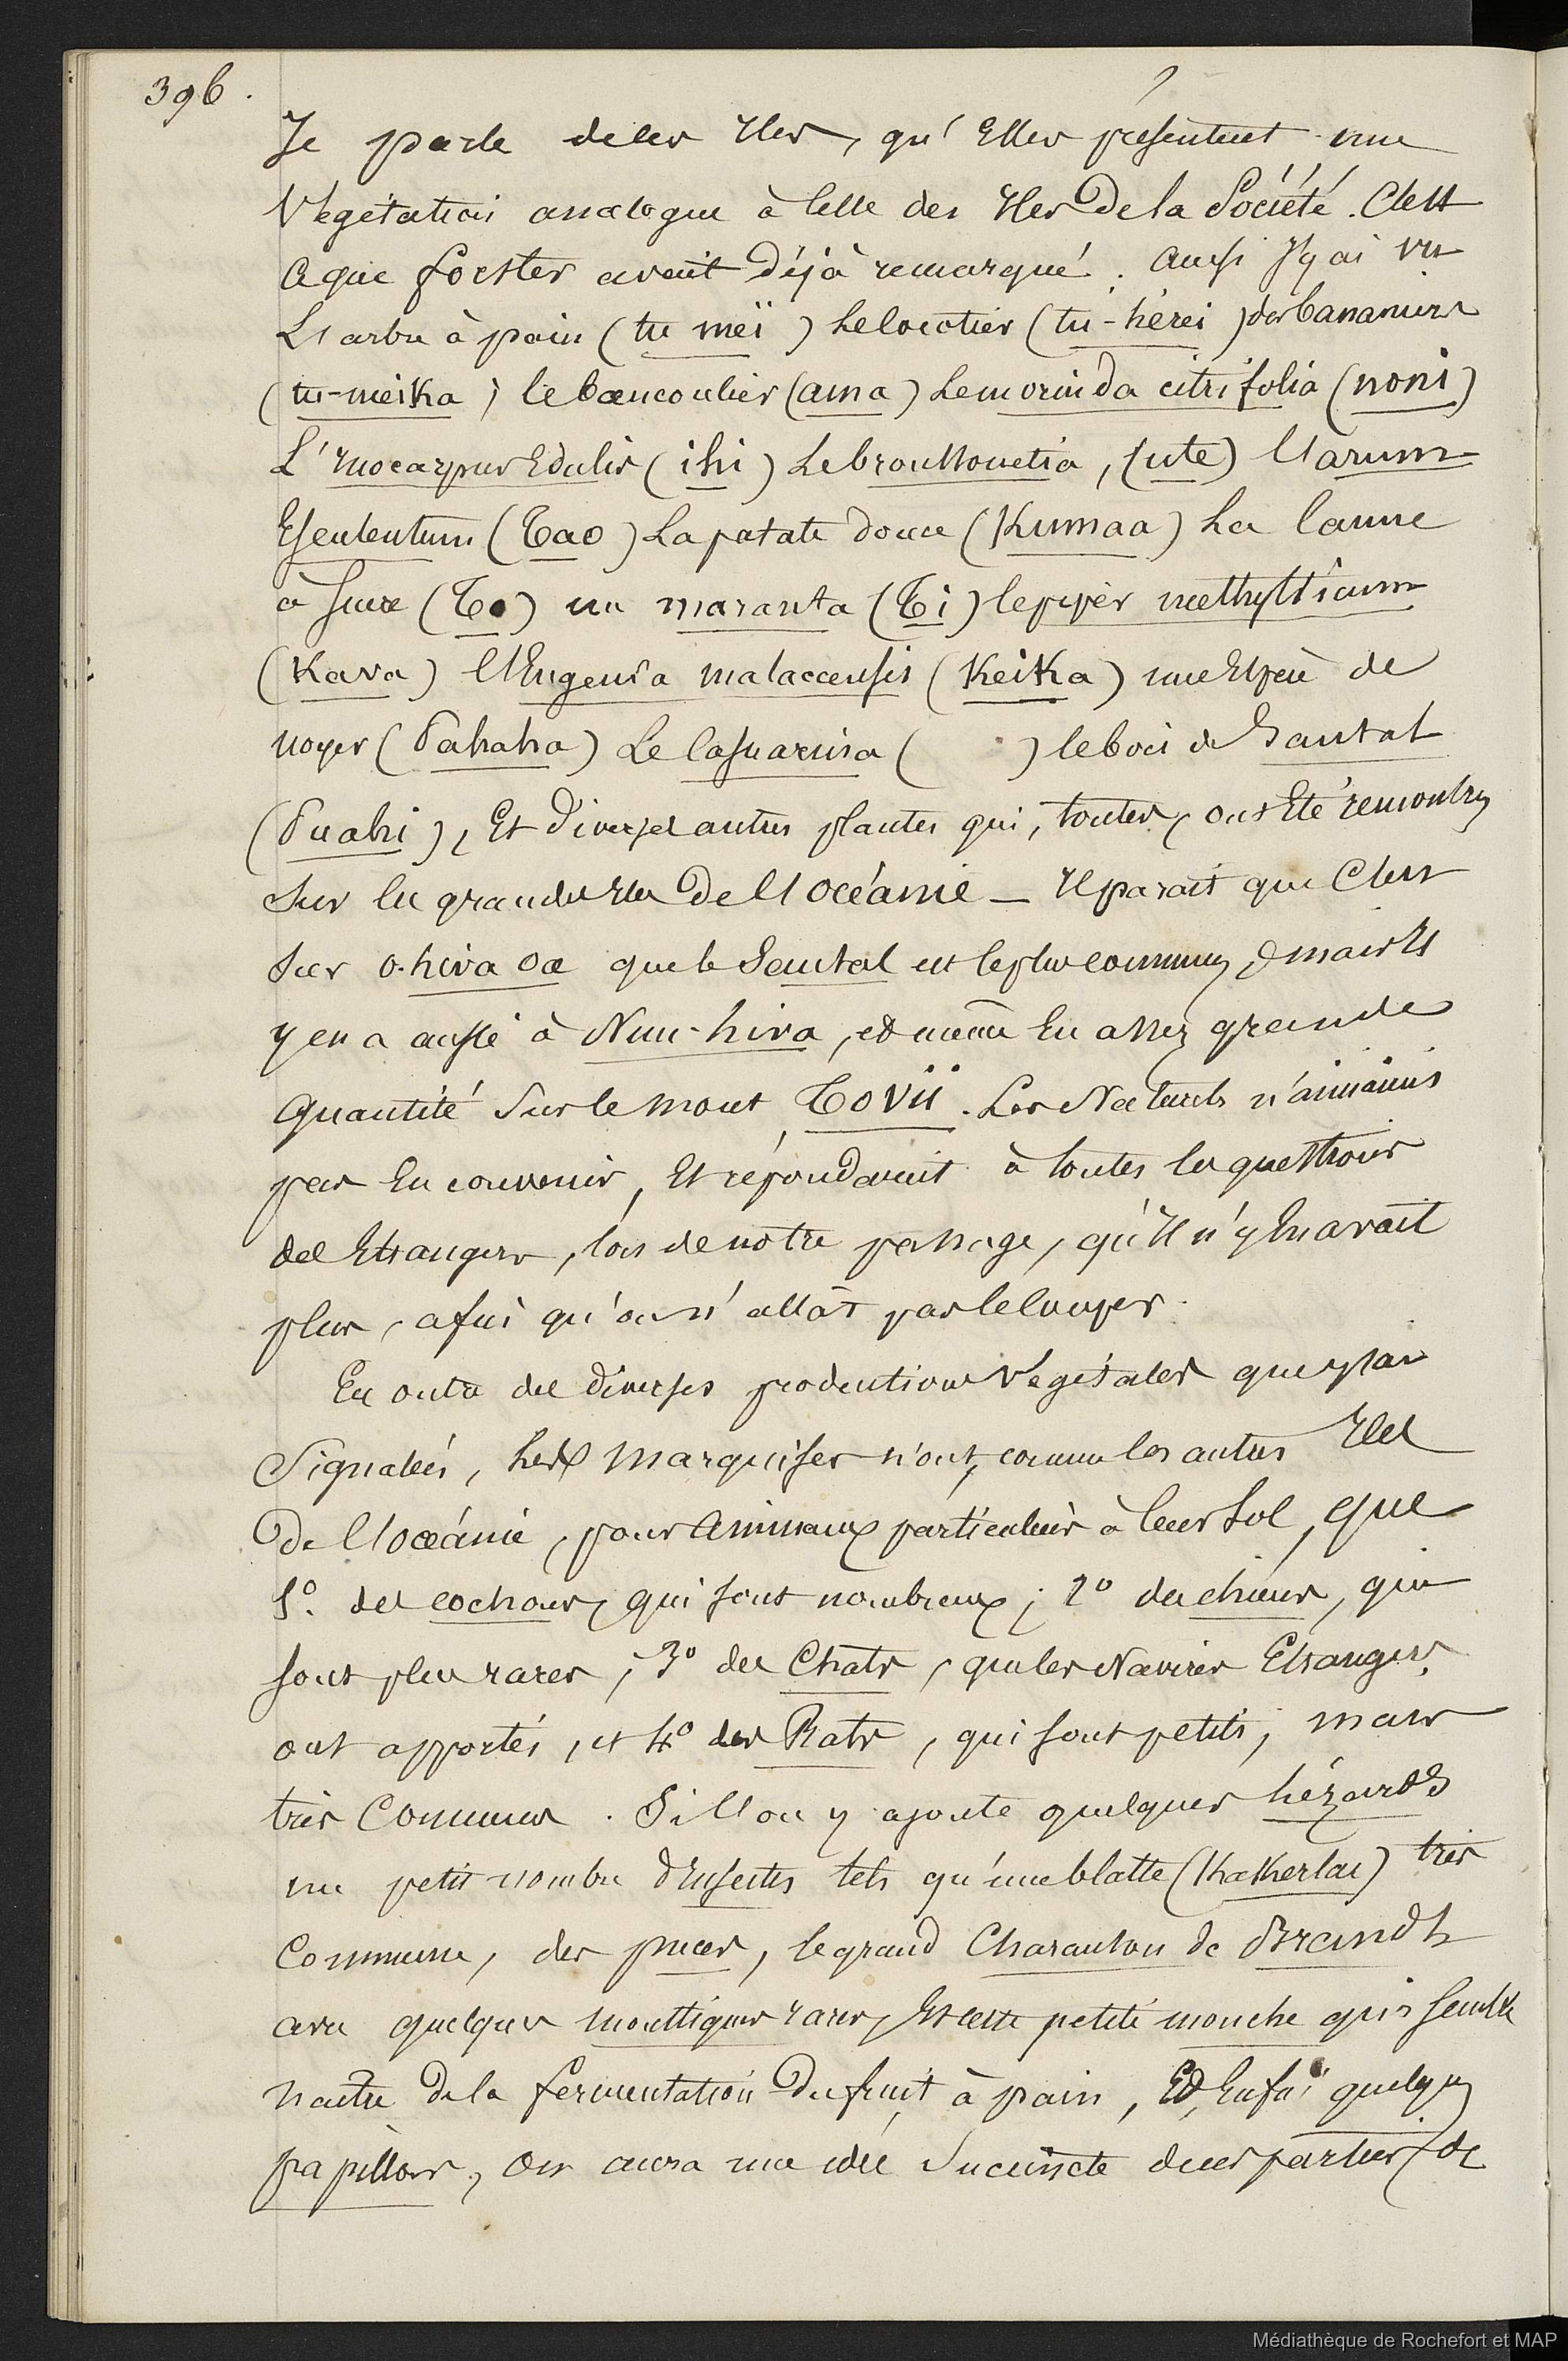 396.
Je parle de ces Iles, qu'Elles présentent une
Végétation analogue à Celle des Iles De la Société. C'est
ce que forster avait Déjà remarqué. Aussi J'y ai vu
L'arbre à pain (tu meï) Le Cocotier (tu-hérei) des bananiers
(tu-meika) le bancoulier (ama) Le morinda citrifolia (noni)
L'Inocarpus Edulis (ihi) Le broussonetia, (ute) l'arum
Esculentum (Tao) La patate douce (Kumaa) La Canne
à sucre (To) un maranta (Ti) le piper methysticum
(Kava) l'Eugenia malaccensis (Keika) une Espèce de
noyer (Pahaha) Le Casuarina ( ) le bois de Santal
(Puahi), Et Diverses autres plantes qui, toutes, ont Eté remontrées
Sur les grandes Iles De l'océanie — Il parait que C'est
Sur o-hiva oa que le Santal est le plus commun, mais Il
y en a aussi à Nuu-hiva, et même En assez grande
Quantité Sur le mont Tovii. Les Naturels n'aimaient
pas En convenir, Et répondaient à toutes les questions
des Etrangers, lors de notre passage, qu'Il n'y En avait
plus, afin qu'on n'allât pas le Couper.
En outre des Diverses productions Végétales que j'ai
Signalées, Les Marquises n'ont, comme les autres Iles
De l'océanie, pour Animaux particuliers à leur Sol, que
1º. des cochons, qui sont nombreux; 2º des chiens, qui
sont plus rares; 3º des Chats, que les Navires Etrangers
ont apportés, et 4º des Rats, qui sont petits, mais
très Communs. Si l'on y ajoute quelques Lézards
un petit nombre d'Insectes tels qu'une blatte (Kakerlac) très
Commune, des puces, le grand Charanson de Brandt
avec quelques moustiques rares, Et cette petite mouche qui semble
naître De la fermentation Du fruit à pain, Et, Enfin quelques
papillons, on aura une idée Succincte de ces parties de
Médiathèque de Rochefort et MAP